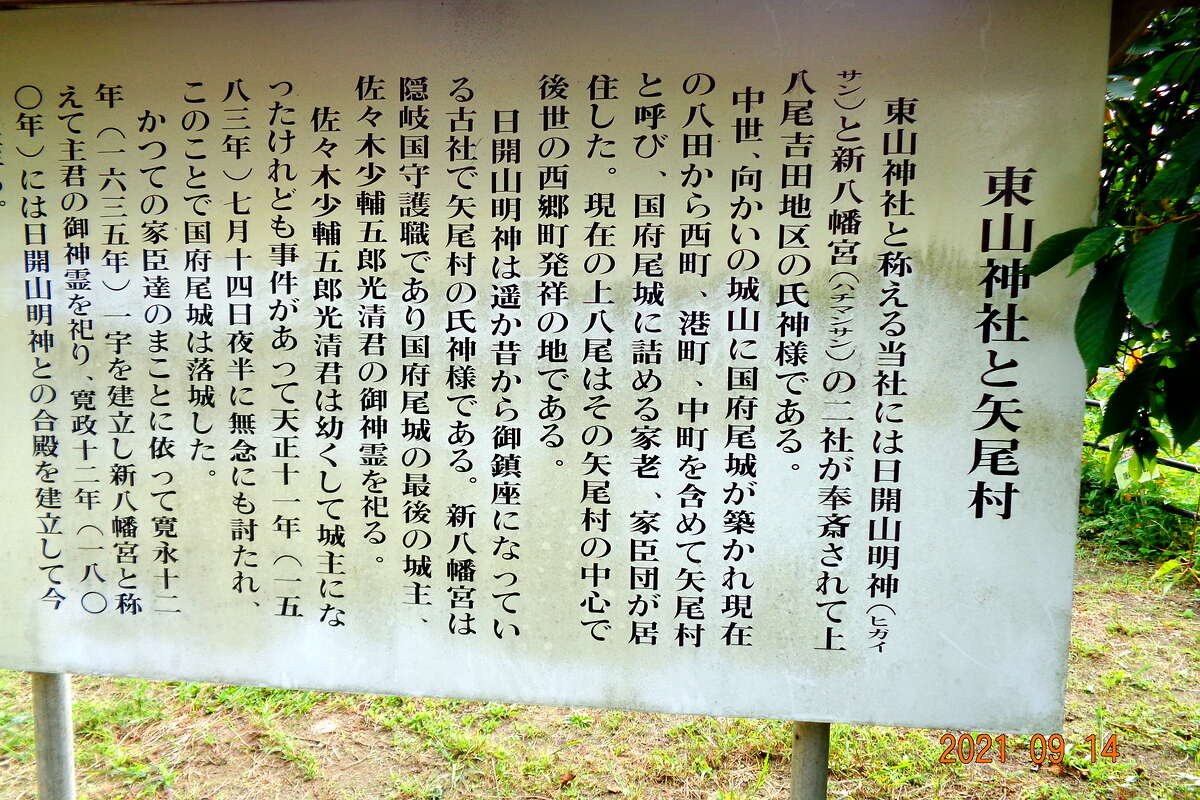 東山神社と矢尾村
東山神社と称える当社には日開山明神（ヒガイ
サン）と新八幡宮（ハチマンサン）の二社が奉斎されて上
八尾吉田地区の氏神様である。
中世、向かいの城山に国府尾城が築かれ現在
の八田から西町、港町、中町を含めて矢尾村
と呼び、国府尾城に詰める家老、家臣団が居
住した。現在の上八尾はその矢尾村の中心で
後世の西郷町発祥の地である。
日開山明神は遥か昔から御鎮座になってい
る古社で矢尾村の氏神様である。新八幡宮は
隠岐国守護職であり国府尾城の最後の城主、
佐々木少輔五郎光清君の御神霊を祀る。
佐々木少輔五郎光清君は幼くして城主にな
ったけれども事件があって天正十一年（一五
八三年）七月十四日夜半に無念にも討たれ、
このことで国府尾城は落城した。
かつての家臣達のまことに依って寛永十二
年（一六三五年）一宇を建立し新八幡宮と称
えて主君の御神霊を祀り、寛政十二年（一八〇
〇年）には日開山明神との合殿を建立して今
2021 09 14